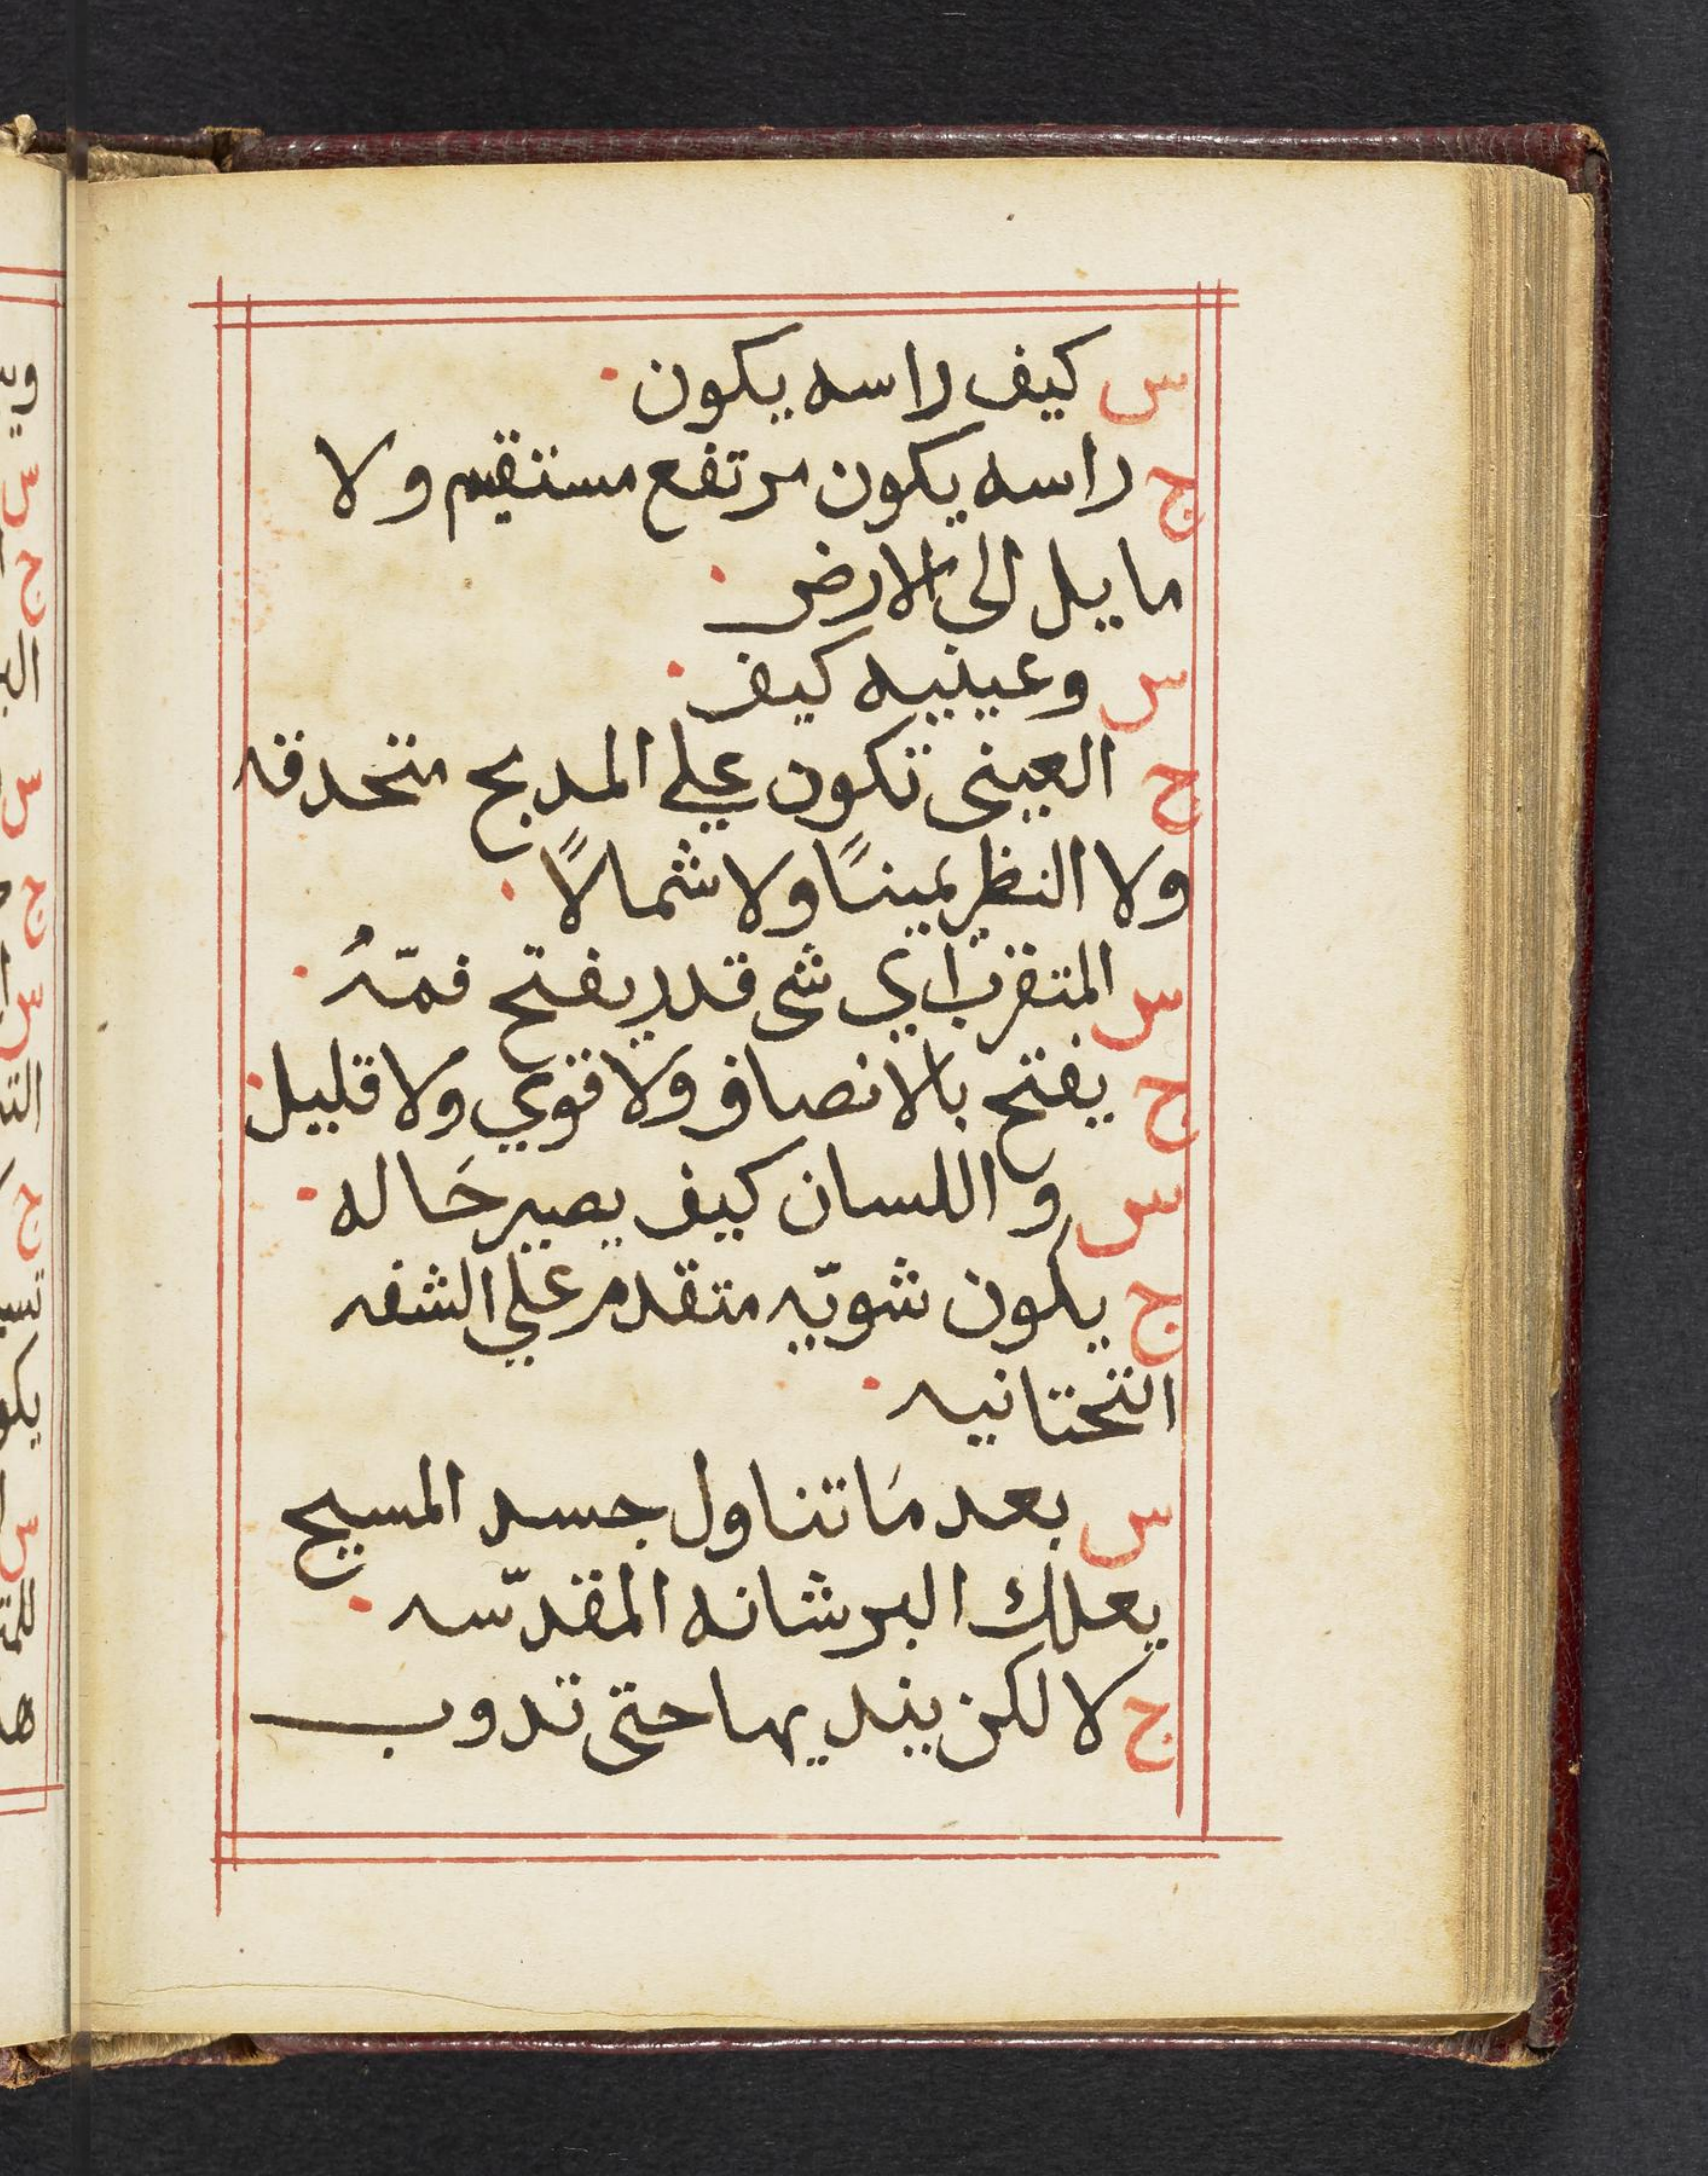 س كيف راسه يكون·
ج راسه يكون مرتفع مستقيم ولا
مايل الى الارض·
س وعينيه كيف·
ج العينى تكون علي المدبح متحدقه
ولا النظر يمينًا ولا شمالًا·
س المتقرب اي شى قدر يفتح فمّهُ·
ج يفتح بالانصاف ولا قوي ولا قليل·
س و اللسان كيف يصير حَاله·
ج يكون شويّه متقدم علي الشفه
التحتانيه·
س بعد مَا تناول جسد المسيح
يعلك البرشانه المقدّسه·
ج لا لكن ينديها حتى تدوب